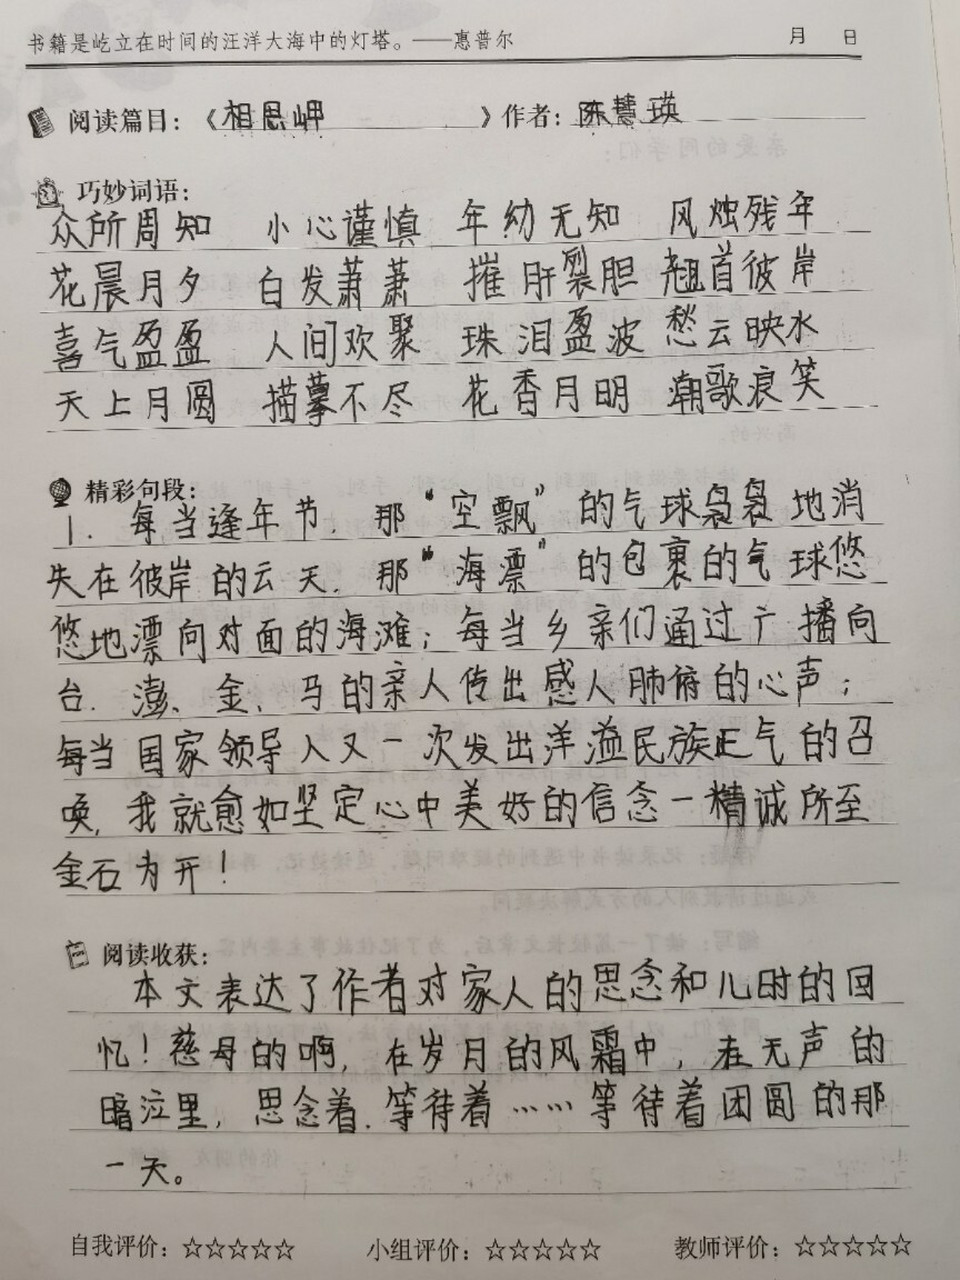 书籍是屹立在时间的汪洋大海中的灯塔。——惠普尔 月 日
阅读篇目：《相思岬》作者：陈慧瑛
巧妙词语：
众所周知 小心谨慎 年幼无知 风烛残年
花晨月夕 白发萧萧 摧肝裂胆 翘首彼岸
喜气盈盈 人间欢聚 珠泪盈波 愁云映水
天上月圆 描摹不尽 花香月明 潮歌浪笑
精彩句段：
1. 每当逢年节，那“空飘”的气球袅袅地消
失在彼岸的云天，那“海漂”的包裹的气球悠
悠地漂向对面的海滩；每当乡亲们通过广播向
台、澎、金、马的亲人传出感人肺俯的心声；
每当国家领导人又一次发出洋溢民族正气的召
唤，我就愈如坚定心中美好的信念一精诚所至
金石为开！
阅读收获：
本文表达了作者对家人的思念和儿时的回
忆！慈母的啊，在岁月的风霜中，在无声的
暗泣里，思念着，等待着……等待着团圆的那
一天。
自我评价：☆☆☆☆☆ 小组评价：☆☆☆☆☆ 教师评价：☆☆☆☆☆